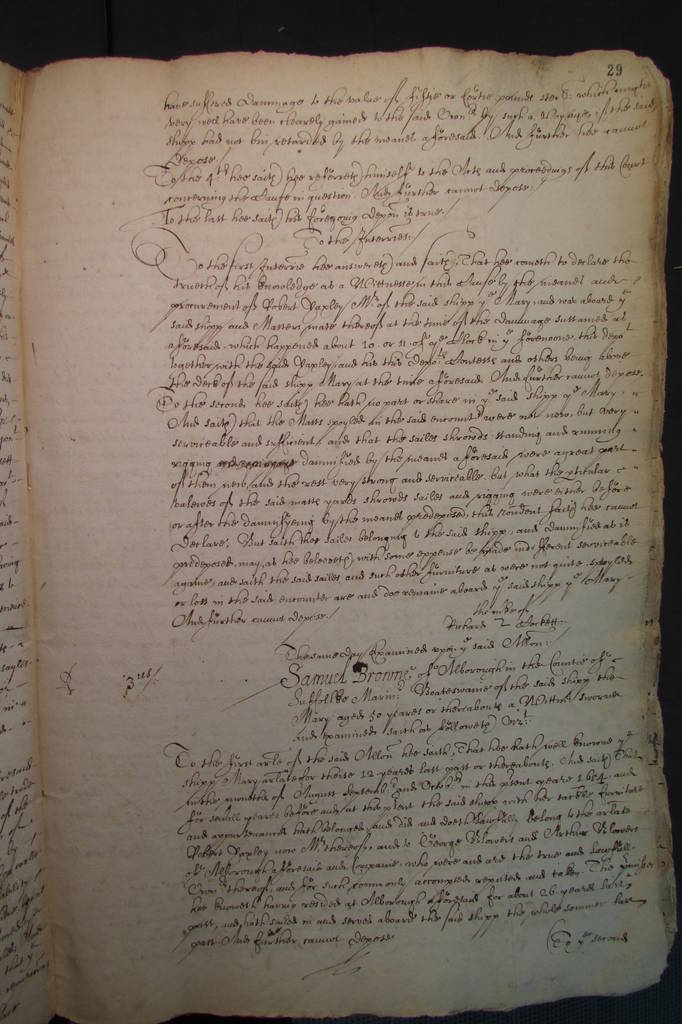 29
have suffered dammage to the value of fiftie or sixtie pounds sterl: which might
very well have been clearely gained to the said Own:rs by such a Voyage, if the said
shipp had not bin retarded by the meanes aforesaid. And further hee cannot
depose.
To the 4th hee saith hee referreth himselfe to the Acts and proceedings of this Court
concerning the Cause in question. And further cannot depose./
To the last hee saith his foregoing depon is true./
To the Interries:/
To the first Interrie hee answereth and saith, That hee cometh to declare the
trueth of his knowledge as a Wittnesse in this Cause by the meanes and
procurement of Robert Yaxley Mr. of the said shipp ye Mary, and was aboard ye
said shipp and Masters mate thereof at the time of the dammage sustained as
aforesaid, which happened about 10. or 11 of ye Clock in ye forenoone, this depot
together with the said Yaxley, and his this depots Contests and others being above
the deck of the said shipp Mary at the time aforesaid. And further cannot depose.
To the second hee saith hee hath no part or share in ye said shipp ye Mary.
And saith that the Masts spoyled in the said encounter were not new, but very
serviceable and sufficient, and that the sailes shrowds standing and running
rigging damnified by the meanes aforesaid were a great part
of them new, and the rest very strong and serviceable, but what the pticular
valewes of the said masts yards shrowds sailes and rigging were either before
or after the damnifyeing by the meanes predeposed, this rondent saith hee cannot
declare. But saith the sailes belonging to the said shipp, and damnified as is
predeposed, may, as hee beleeveth with some expense be made indifferent serviceable
againe, and saith the said sailes and such other furniture as were not quite spoyled
or lost in the said encounter are and doe remaine aboard ye said shipp ye Mary
And further cannot depose./
the mke of
Richard Cockett
The same day Examined upon ye said Allon:
Samuel Browne of Alborough in the Countie of
Suffolke Marinr Boatswaine of the said shipp the
Mary aged 50 yeares or thereabouts a Wittnes sworne
and examined saith as followeth vizt:
To the first arle of the said Allon hee saith, That hee hath well knowne ye
shipp Mary arlate for theise 12 yeares last past or thereabouts. And saith that
in the moneths of August September and Octobr in this pnt yeare 1654 and
for severall yeares before and at the pnt the said shipp with her tackle furniture
and appurtenances hath belonged, and did and doeth lawfully belong to the arlate
Robert Yaxley now Mr thereof, and to George Blowers and Arthur Blowers
of Alborough aforesaid and Companie, who were and are the true and lawfull
Owners thereof, and for such commonly accompted reputed and taken. The
hee knoweth having resided at Alborough aforesaid for about 26 yeares last
past, and hath sailed in and served aboard the said shipp the whole sommer last
past. And further cannot depose
To ye second